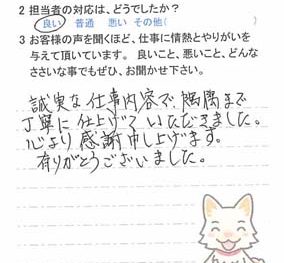 2 担当者の対応は、どうでしたか?
良い 普通 悪い その他( )
3 お客様の声を聞くほど、仕事に情熱とやりがいを
与えて頂いています。良いこと、悪いこと、どんな
ささいな事でもぜひ、お聞かせ下さい。
誠実な仕事内容で、隅隅まで
丁寧に仕上げていただきました。
心より感謝申し上げます。
有りがとうございました。